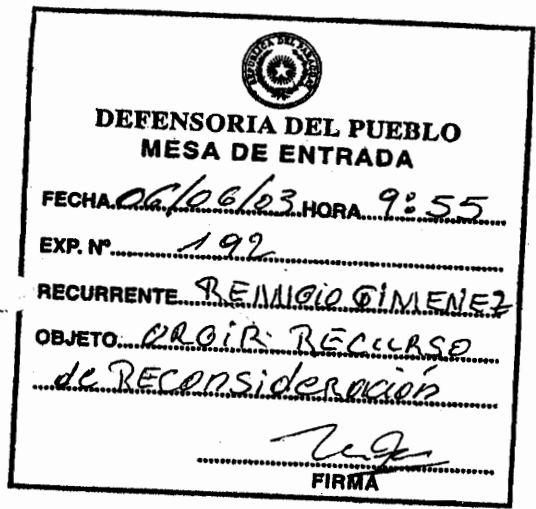 REPUBLICA DEL PARAGUAY
DEFENSORIA DEL PUEBLO
MESA DE ENTRADA
FECHA 06/06/03 HORA 9:55
EXP. Nº 192
RECURRENTE REMIGIO GIMENEZ
OBJETO RECURSO
de REConsideración
FIRMA